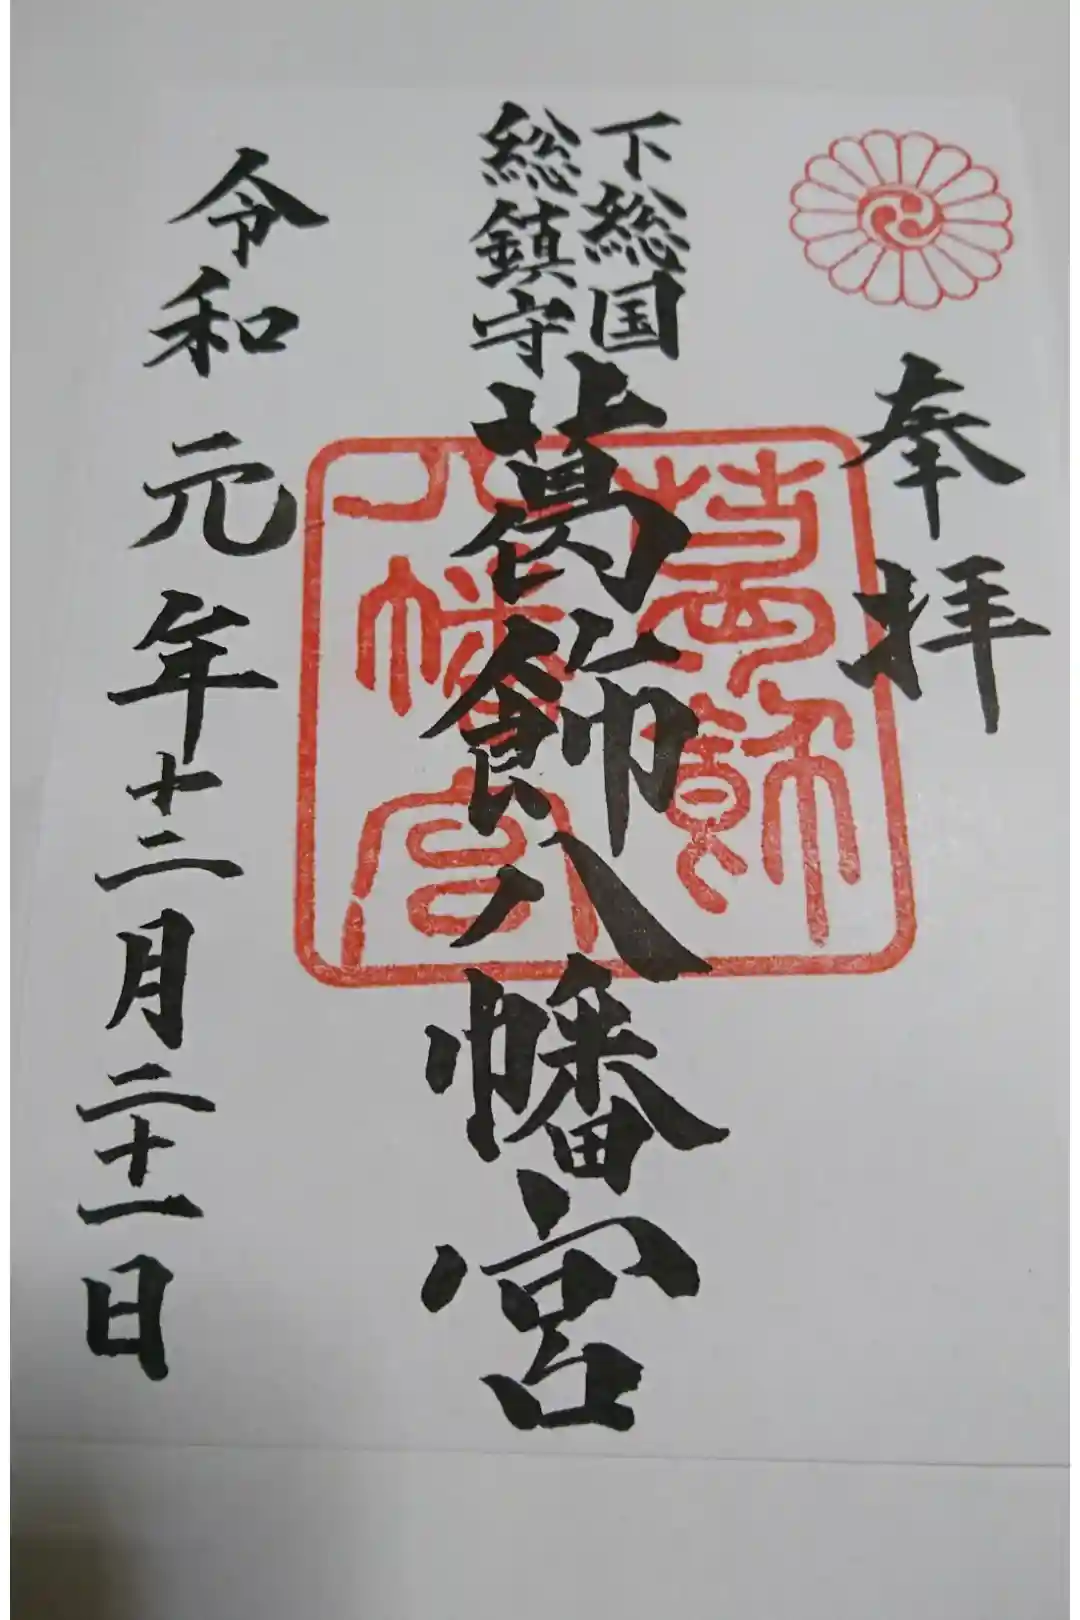 奉拝
下総国
総鎮守
葛飾八幡宮
葛飾
八幡宮
令和元年十二月二十一日